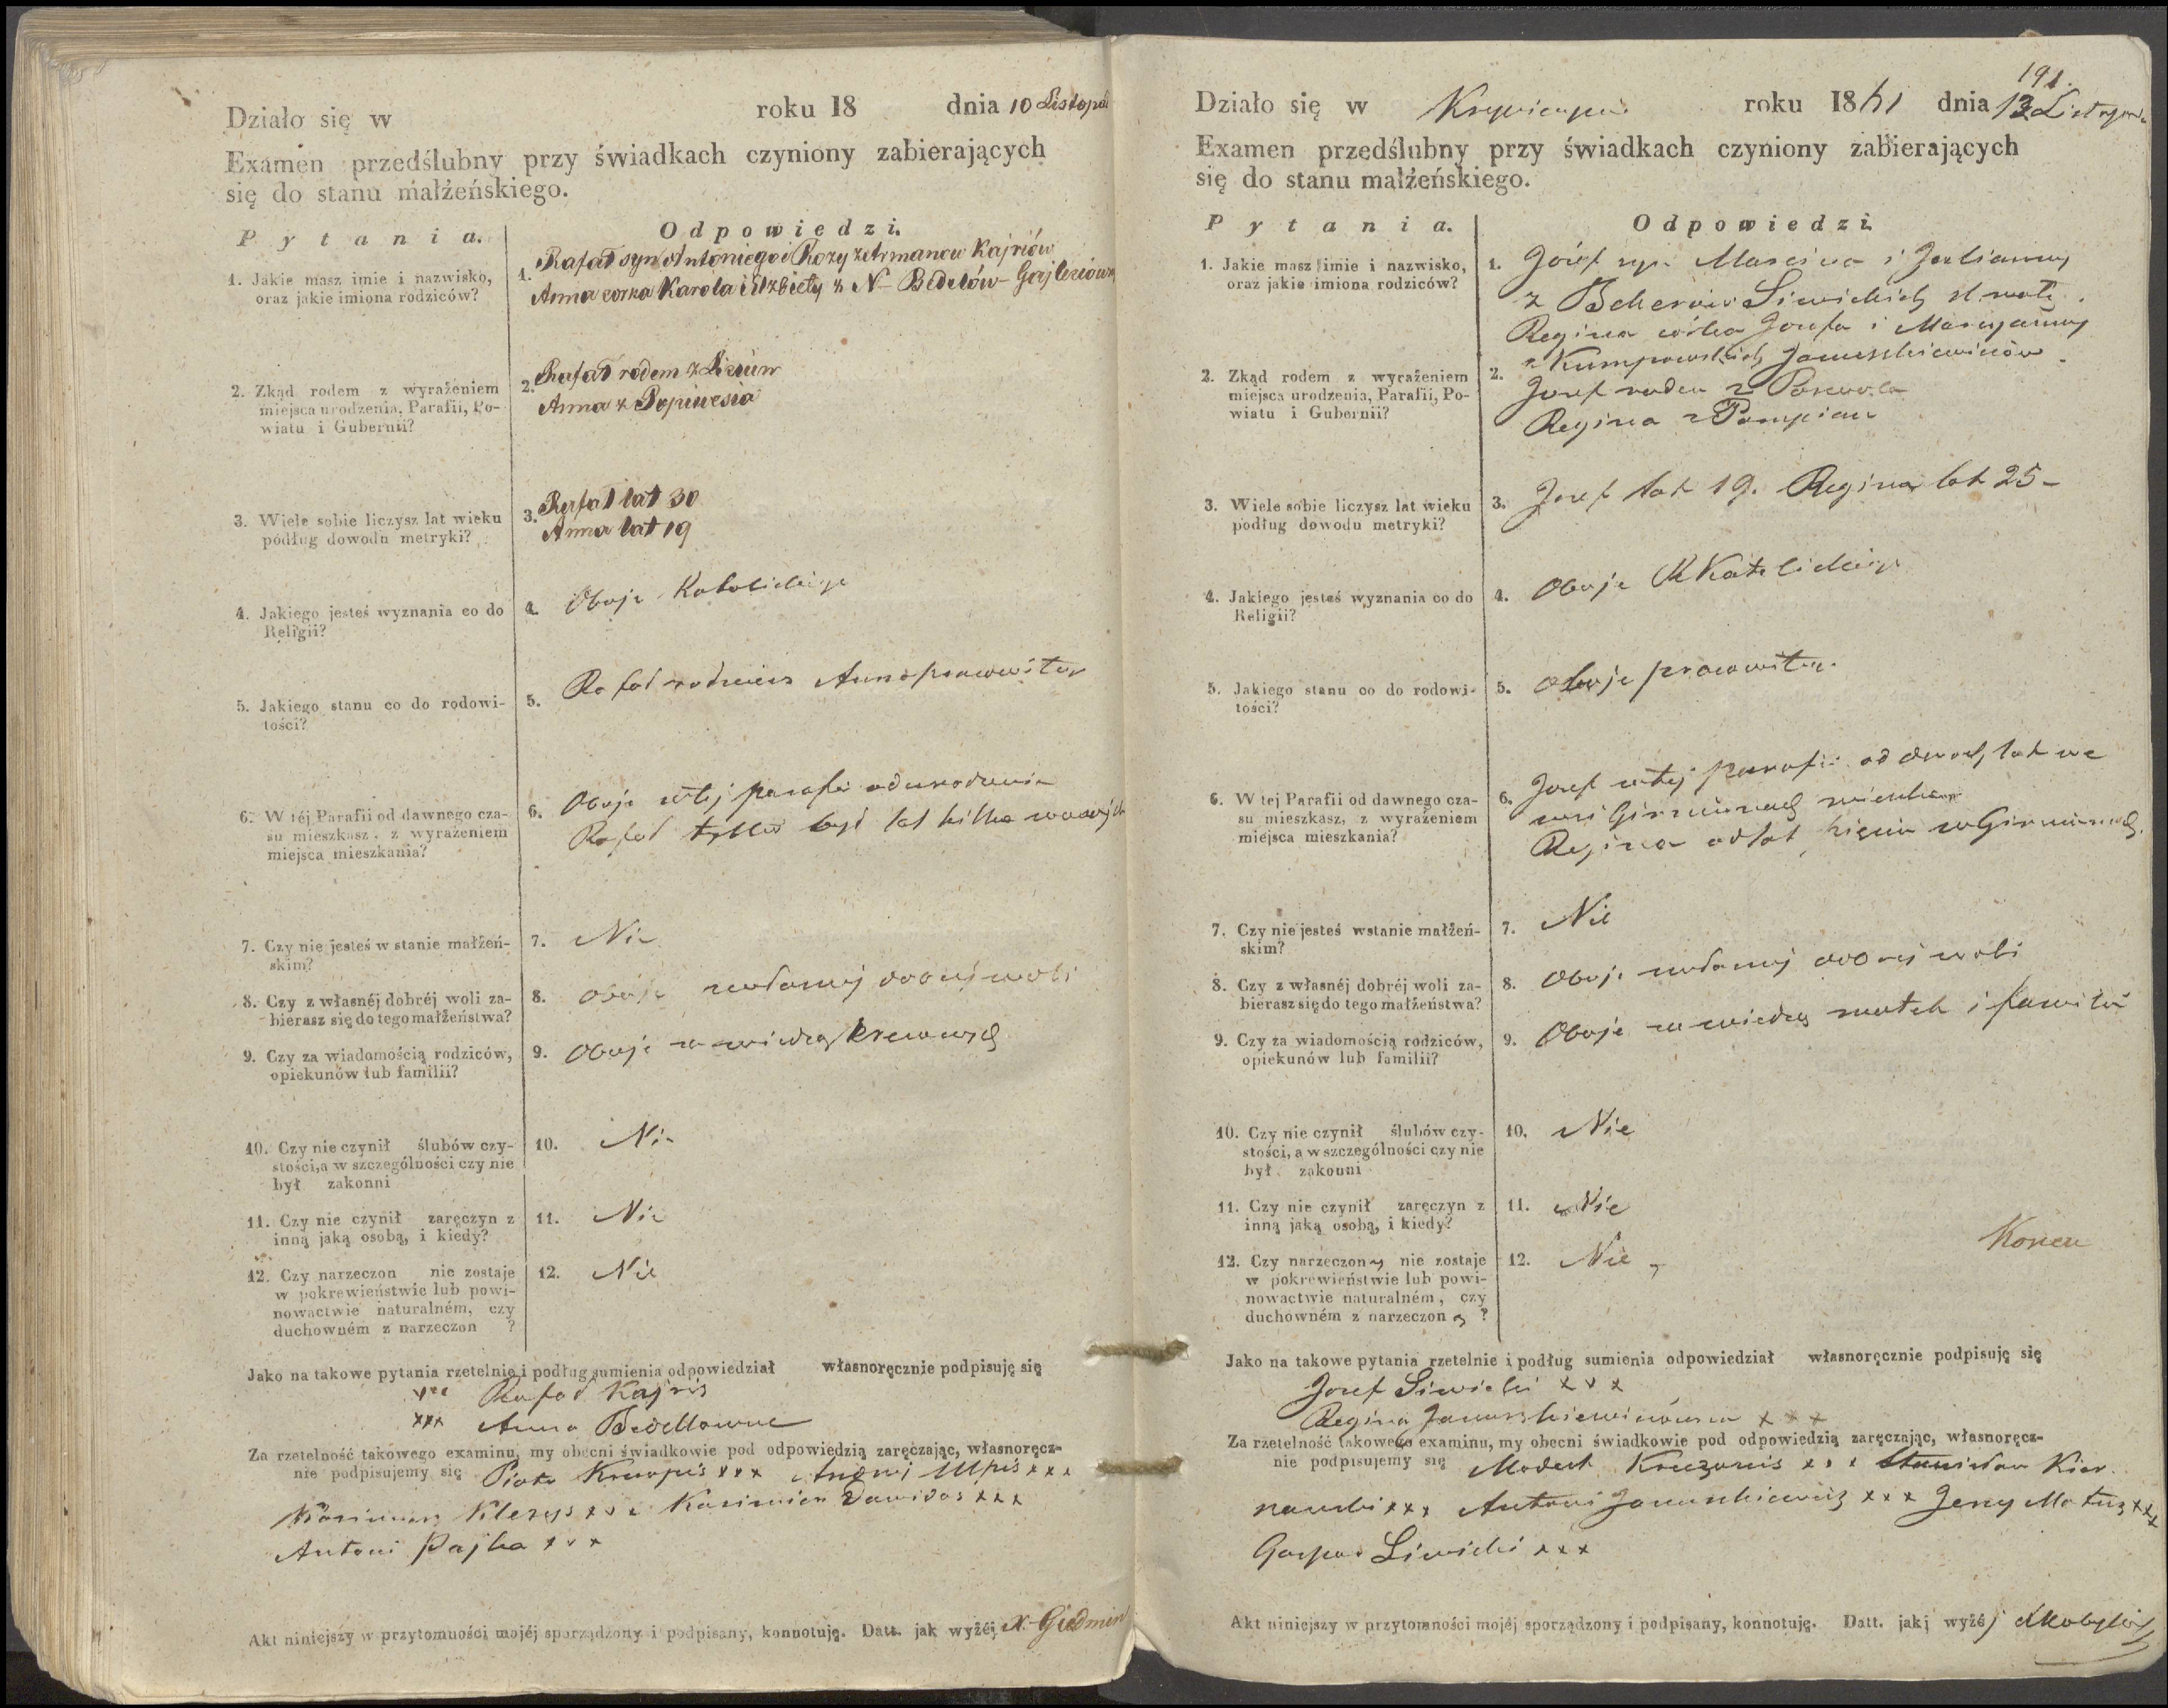 Działo się w roku 18 dnia 10 Listopad
Examen przedślubny przy świadkach czyniony zabierających
się do stanu małżeńskiego.
Pytania. Odpowiedzi.
1. Jakie masz imie i nazwisko,
oraz jakie imiona rodziców?
1. Rafał syn Antoniego i Rozy
Anna corka Karola i Elzbiety z N
2. Zkąd rodem z wyrażeniem
miejsca urodzenia, Parafii, Po-
wiatu i Gubernii?
2. Rafał rodem z
Anna z
3. Wiele sobie liczysz lat wieku
podług dowodu metryki?
3. Rafał lat 30
Anna lat 19
4. Jakiego jesteś wyznania co do
Religii?
4. Oboje Katolickiego
5. Jakiego stanu co do rodowi-
tości?
5. Rafał Anna
6. W téj Parafii od dawnego cza-
su mieszkasz, z wyrażeniem
miejsca mieszkania?
6. Oboje w tej parafii od urodzenia
Rafał tylko był lat kilka
7. Czy nie jesteś w stanie małżeń-
skim?
7. Nie
8. Czy z własnéj dobréj woli za-
bierasz się do tego małżeństwa?
8. Oboje woli
9. Czy za wiadomością rodziców,
opiekunów lub familii?
9. Oboje za wiedzą krewnych
10. Czy nie czynił ślubów czy-
stości, a w szczególności czy nie
był zakonni
10. Nie
11. Czy nie czynił zaręczyn z
inną jaką osobą, i kiedy?
11. Nie
12. Czy narzeczon nie zostaje
w pokrewieństwie lub powi-
nowactwie naturalném, czy
duchowném z narzeczon ?
12. Nie
Jako na takowe pytania rzetelnie i podług sumienia odpowiedział własnoręcznie podpisuję się
xxx Rafał Kajris
xxx Anna
Za rzetelność takowego examinu, my obecni świadkowie pod odpowiedzią zaręczając, własnoręcz-
nie podpisujemy się Piotr xxx xxx
xxx Kazimierz xxx
Antoni xxx
Akt niniejszy w przytomności mojéj sporządzony i podpisany, konnotuję. Datt. jak wyżéj X.
191.
Działo się w roku 1841 dnia 13
Examen przedślubny przy świadkach czyniony zabierających
się do stanu małżeńskiego.
Pytania. Odpowiedzi.
1. Jakie masz imie i nazwisko,
oraz jakie imiona rodziców?
1. Józef syn Marcina i Julianny
z Siwickich
Regina córka Jozefa i Maryanny
z Januszkiewiczów
2. Zkąd rodem z wyrażeniem
miejsca urodzenia, Parafii, Po-
wiatu i Gubernii?
2. Jozef rodem z
Regina z
3. Wiele sobie liczysz lat wieku
podług dowodu metryki?
3. Jozef lat 19. Regina lat 25 -
4. Jakiego jesteś wyznania co do
Religii?
4. Oboje R Katolickiego
5. Jakiego stanu co do rodowi-
tości?
5. Oboje pracowite.
6. W tej Parafii od dawnego cza-
su mieszkasz, z wyrażeniem
miejsca mieszkania?
6. Jozef w tej parafii od dwoch lat we
wsi
Regina od lat
7. Czy nie jesteś wstanie małżeń-
skim?
7. Nie
8. Czy z własnéj dobréj woli za-
bierasz się do tego małżeństwa?
8. Oboje woli
9. Czy za wiadomością rodziców,
opiekunów lub familii?
9. Oboje za wiedzą matek i familii
10. Czy nie czynił ślubów czy-
stości, a w szczególności czy nie
był zakonni
10. Nie
11. Czy nie czynił zaręczyn z
inną jaką osobą, i kiedy?
11. Nie
12. Czy narzeczony nie zostaje
w pokrewieństwie lub powi-
nowactwie naturalném, czy
duchowném z narzeczoną ?
12. Nie
Koniec
Jako na takowe pytania rzetelnie i podług sumienia odpowiedział własnoręcznie podpisuję się
Jozef Siwicki xxx
Regina xxx
Za rzetelność takowego examinu, my obecni świadkowie pod odpowiedzią zaręczając, własnoręcz-
nie podpisujemy się Modest xxx Stanisław Kier
nowski xxx Antoni Januszkiewicz xxx Jerzy xxx
Gaspar Siwicki xxx
Akt niniejszy w przytomności mojéj sporządzony i podpisany, konnotuję. Datt. jak wyżéj